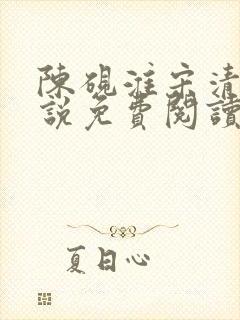 陳硯淮宋清
説免費閱讀
夏日心